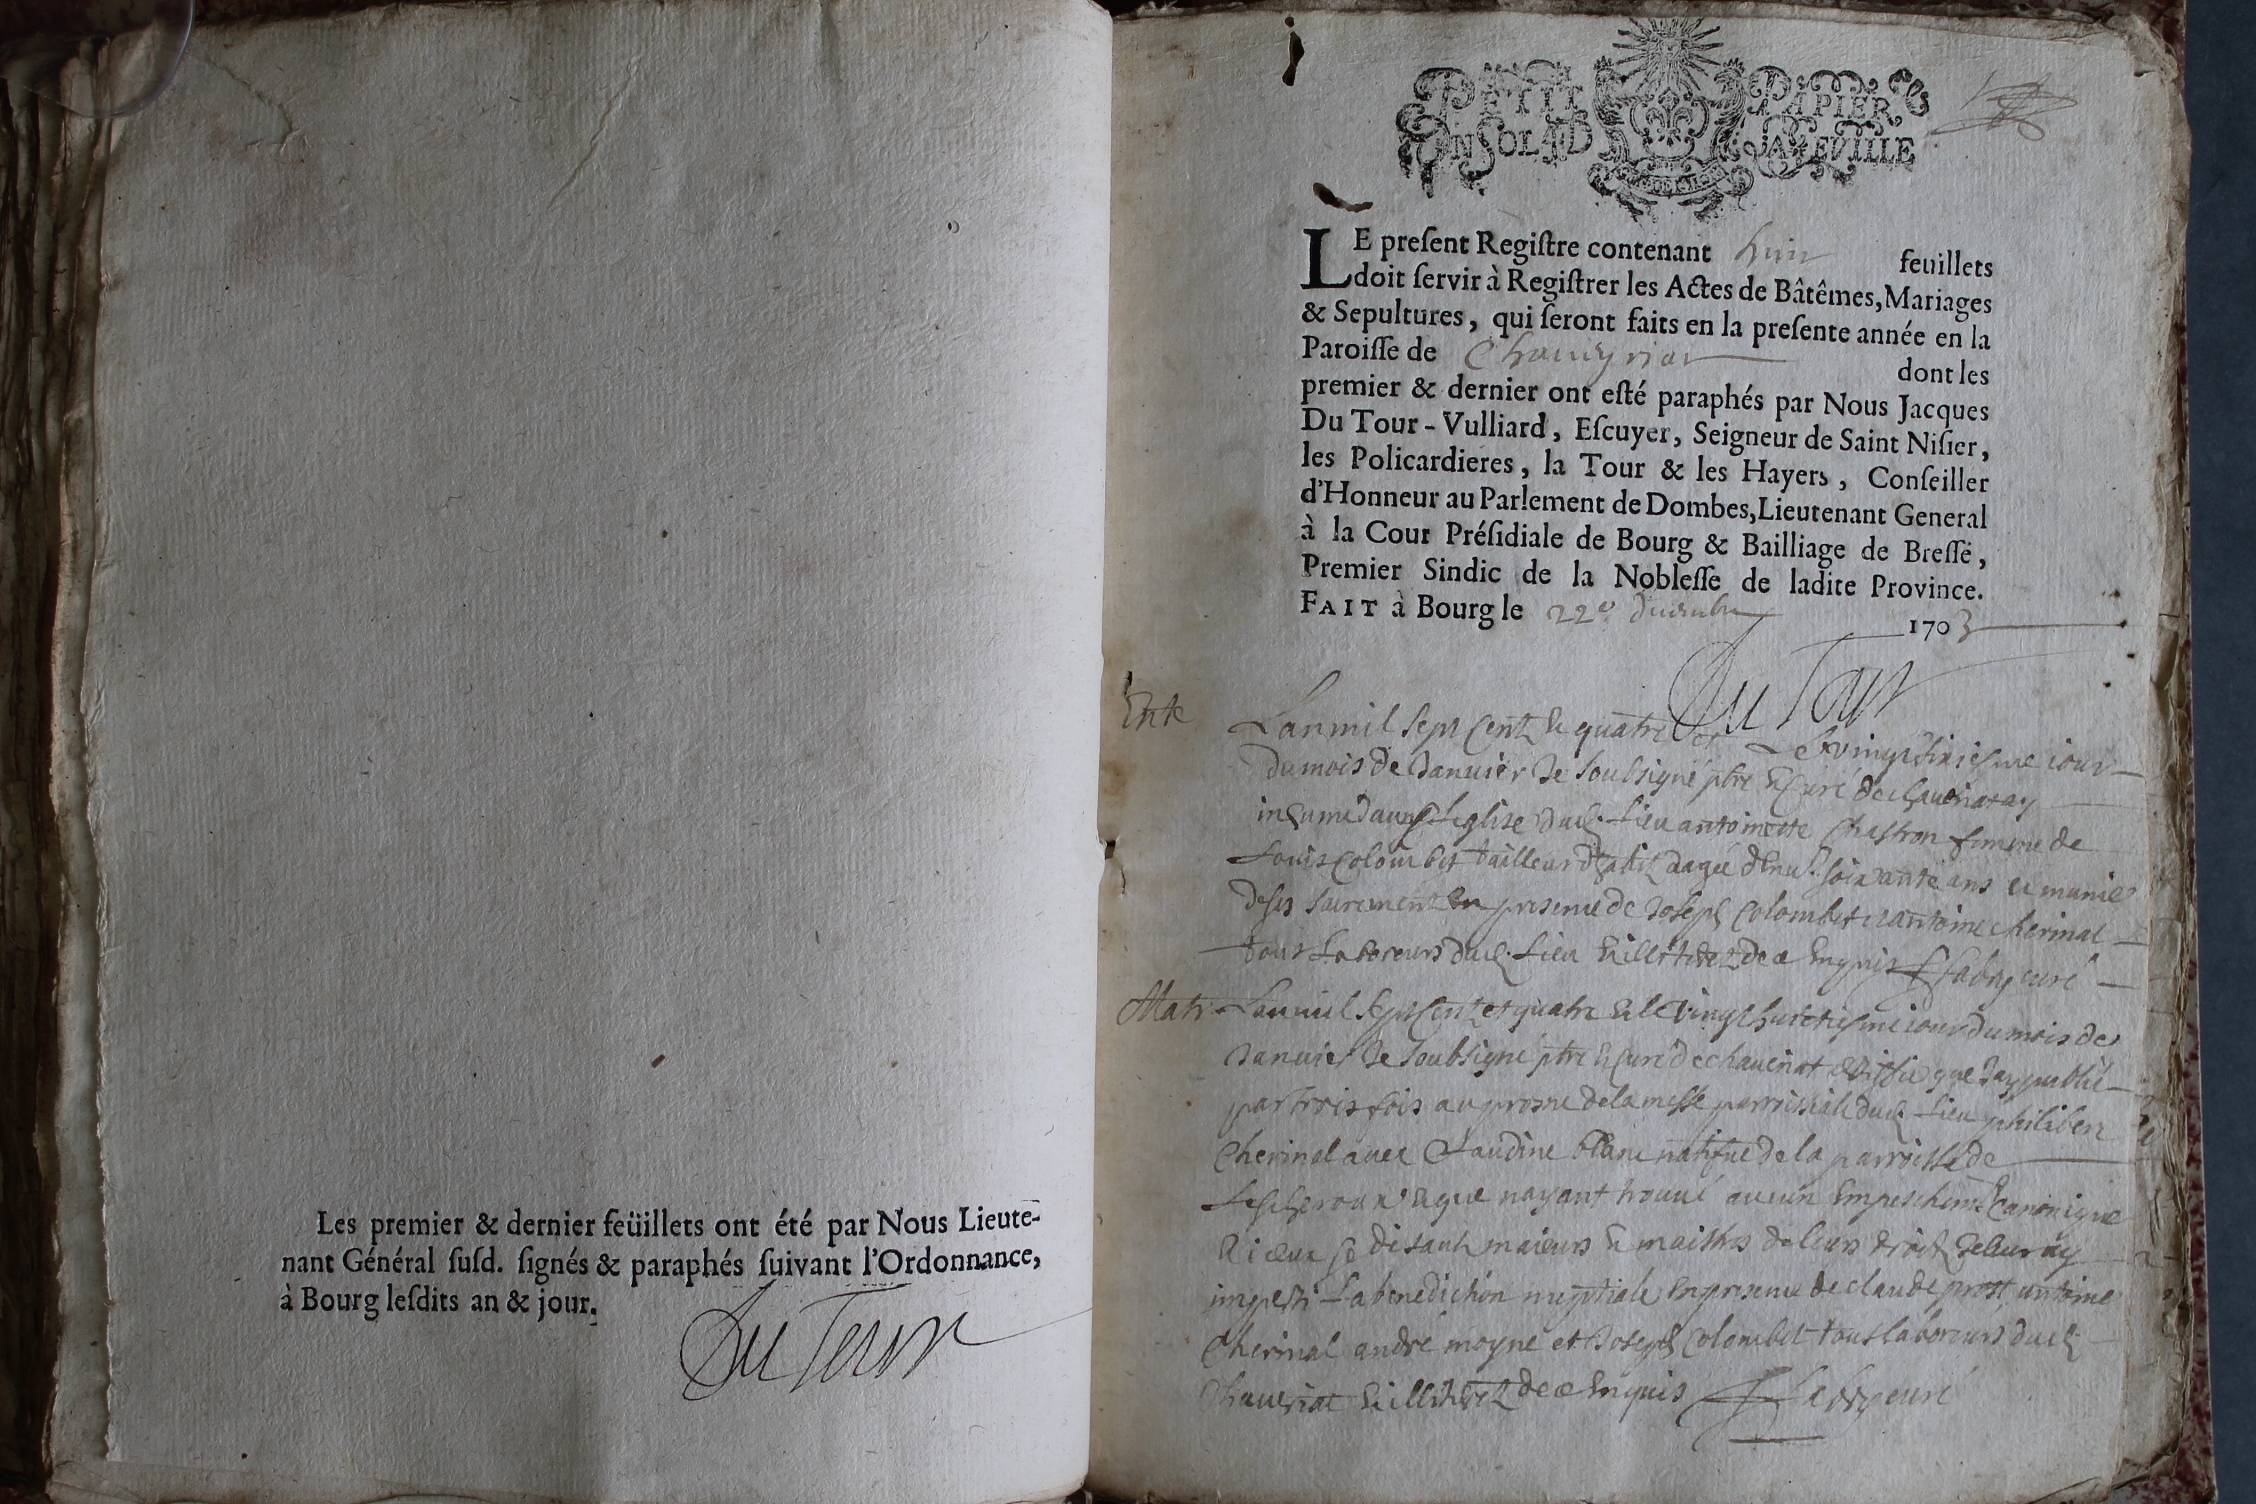 Les premier & dernier feüillets ont été par Nous Lieute-
nant Général suſd. ſignés & paraphés ſuivant l'Ordonnance,
à Bourg leſdits an & jour.
Du Tour
PETIT PAPIER
UN SOL LA FEUILLE
LE preſent Regiſtre contenant huit feuillets
doit ſervir à Regiſtrer les Actes de Bâtêmes, Mariages
& Sepultures, qui ſeront faits en la preſente année en la
Paroiſſe de Chaveyriat dont les
premier & dernier ont eſté paraphés par Nous Jacques
Du Tour-Vulliard, Eſcuyer, Seigneur de Saint Niſier,
les Policardieres, la Tour & les Hayers, Conſeiller
d'Honneur au Parlement de Dombes, Lieutenant General
à la Cour Préſidiale de Bourg & Bailliage de Breſſe,
Premier Sindic de la Nobleſſe de ladite Province.
FAIT à Bourg le 22e decembre 1703
Du Tour
Ent
Lan mil sept centz & quatre et Le vingt sixiesme iour
du mois de Januier Je soubsigné ptre & Curé de
inhumé dans Leglise dud. Lieu antoinette Chastron femme de
Louis Colombet tailleur dhabitz aagée denv. soixante ans et munie
de ses sacrementz en presence de Joseph Colombet et antoine cherinal
tous Laboreurs dud. Lieu & illiteréz de ce Enquis curé
Matr
Lan mil sept centz et quatre & le vingt huictiesme iour du mois de
Januier Je soubsigné ptre & Curé de chaueriat que Jay publié
par trois fois au prosne de la messe parroissiale dud. Lieu philibert
Cherinal auec Claudine blanc natifue de la parroisse de
& que nayant trouué aucun Empeschemt. Canonique
& iceux se disants maieurs & maistres de leurs droitz Je leur ay
imparti La benediction nuptiale en presence de claude prost antoine
Cherinal andré moyne et Joseph Colombet tous laboreurs dud.
Chaueriat & illiteréz de ce Enquis curé